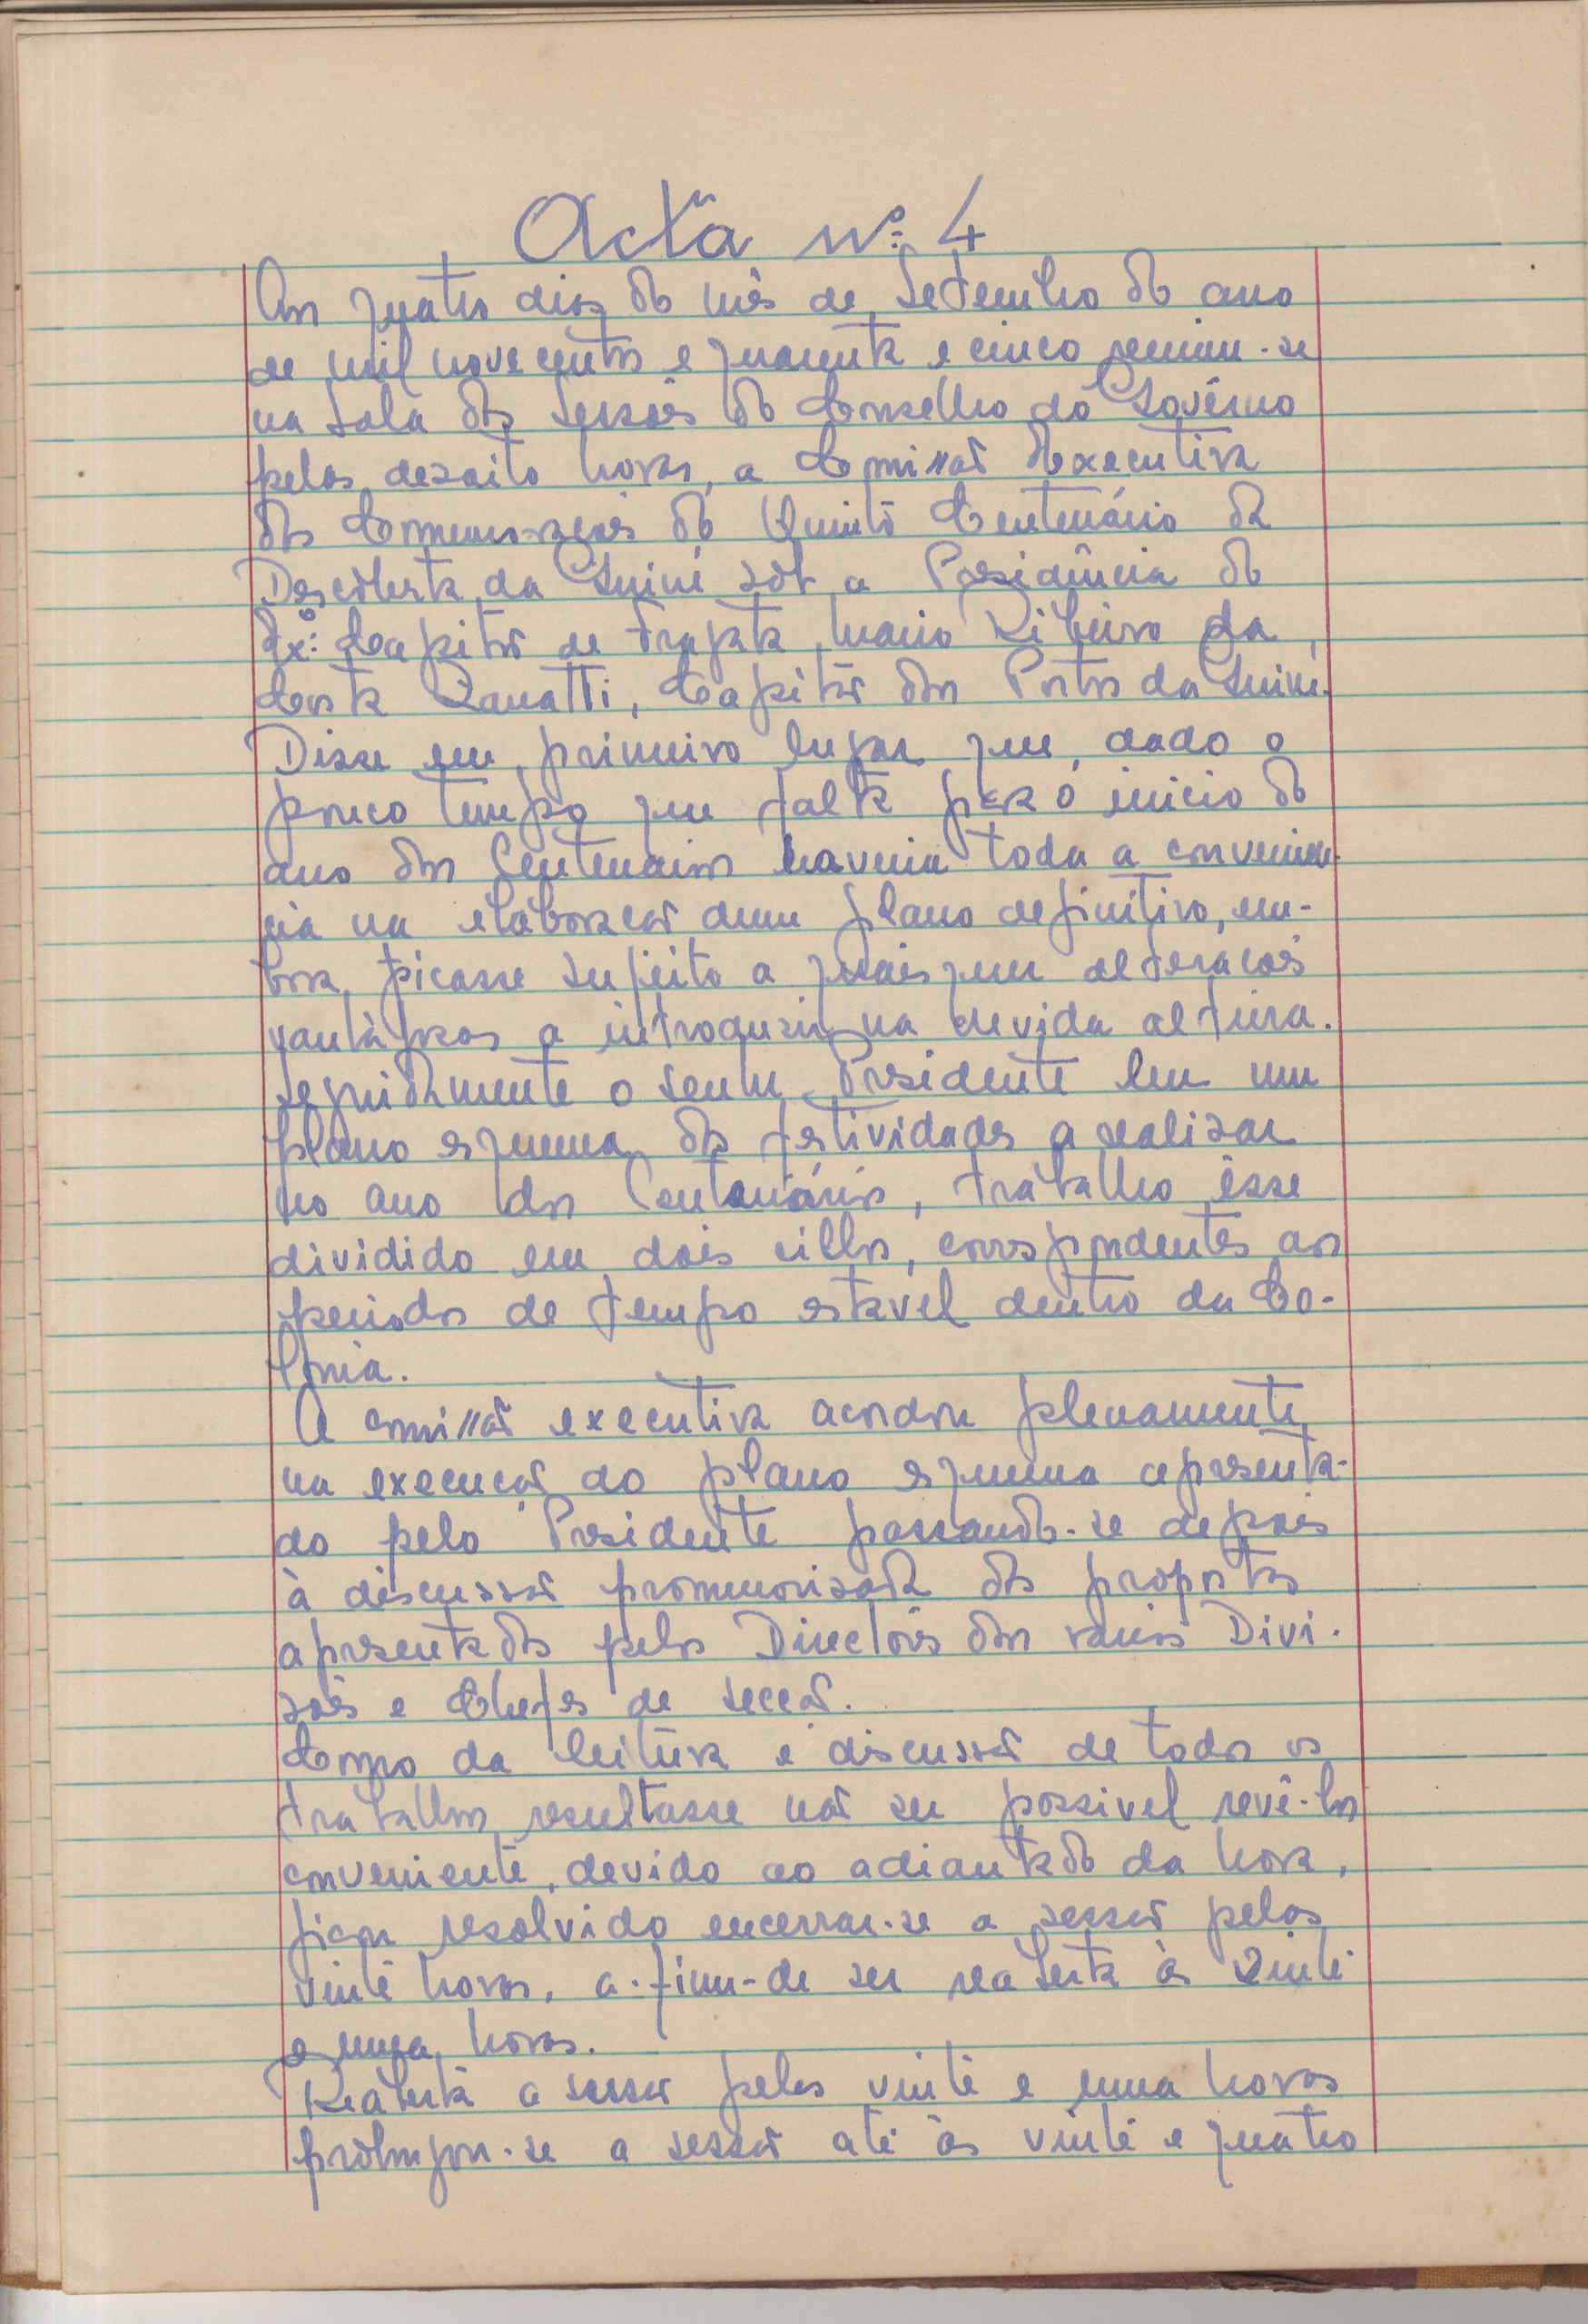 Acta nº 4
Aos quatro dias do mês de Setembro do ano
de mil novecentos e quarenta e cinco reuniu-se
na Sala das Sessões do Conselho do Govêrno
pelas dezoito horas, a Comissão Executiva
das Comemorações do Quinto Centenário da
Descoberta da Guiné sob a Presidência do
Exº: Capitão de Fragata Mario Ribeiro da
Costa Zanatti, Capitão dos Portos da Guiné.
Disse em primeiro lugar que, dado o
pouco tempo que falta para o inicio do
ano dos Centenarios haveria toda a convenien-
cia na elaboração dum plano definitivo, em-
bora, ficasse sujeito a quaisquer alterações
vantajosas a introduzir na devida altura.
Seguidamente o senhor Presidente leu um
plano esquema das festividades a realizar
no ano dos Centenários, trabalho êsse
dividido em dois ciclos, correspondentes aos
periodos de tempo estavel dentro da Co-
lonia.
A comissão executiva acordou plenamente
na execução do plano esquema apresenta-
do pelo Presidente passando-se depois
à discussão promenorisada das propostas
apresentadas pelos Directores das varias Divi-
sões e Chefes de secção.
Como da leitura e discussão de todos os
trabalhos resultasse não ser possivel revê-los
conveniente, devido ao adiantado da hora,
ficou resolvido encerrar-se a sessão pelas
vinte horas, a-fim-de ser reaberta às vinte
e uma horas.
Reaberta a sessão pelas vinte e uma horas
prolongou-se a sessão até às vinte e quatro